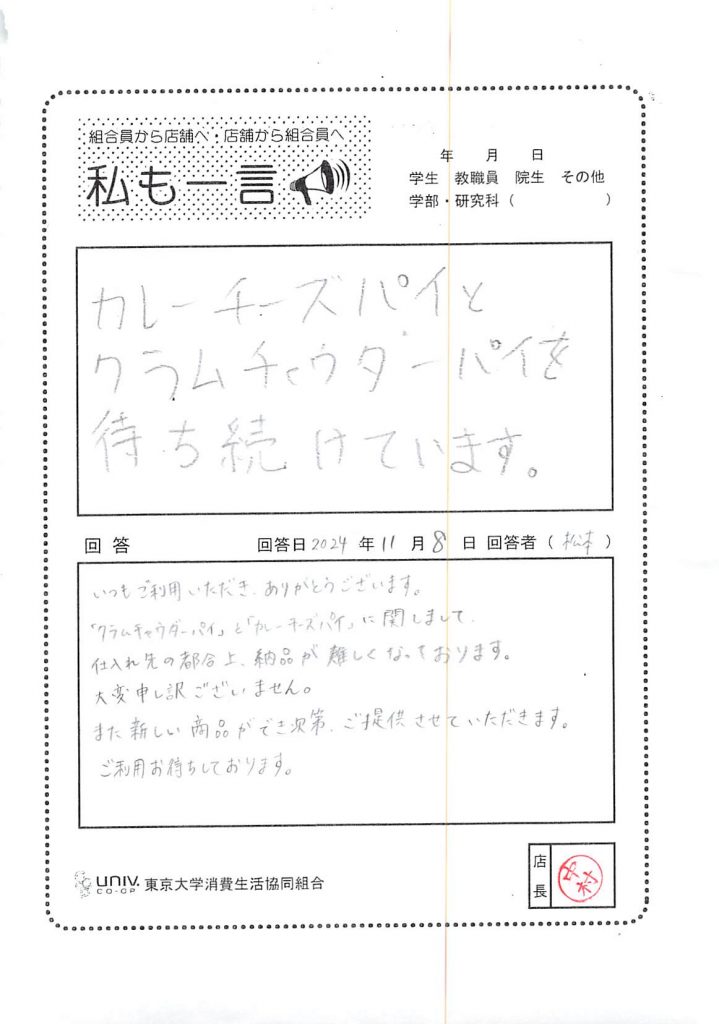 組合員から店舗へ・店舗から組合員へ
私も一言
年　月　日
学生　教職員　院生　その他
学部・研究科（　　　　　）
カレーチーズパイと
クラムチャウダーパイを
待ち続けています。
回答　回答日2024年11月8日 回答者（松本）
いつもご利用いただき、ありがとうございます。
「クラムチャウダーパイ」と「カレーチーズパイ」に関しまして、
仕入れ先の都合上、納品が難しくなっております。
大変申し訳ございません。
また新しい商品ができ次第、ご提供させていただきます。
ご利用お待ちしております。
店長
中村
UNIV. CO-OP 東京大学消費生活協同組合